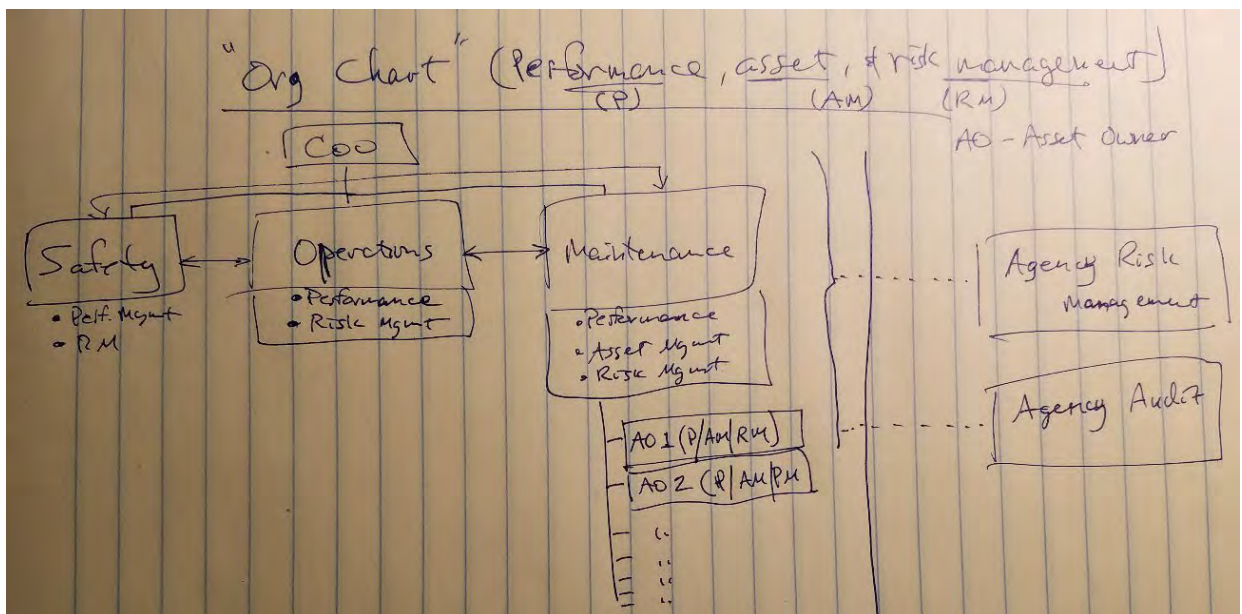 "Org Chart" (Performance, asset, & risk management)
(P) (AM) (RM)
AO - Asset Owner
COO
Safety
• Perf. Mgmt
• RM
Operations
• Performance
• Risk Mgmt
Maintenance
• Performance
• Asset Mgmt
• Risk Mgmt
AO 1 (P/AM/RM)
AO 2 (P/AM/PM
Agency Risk
Management
Agency Audit